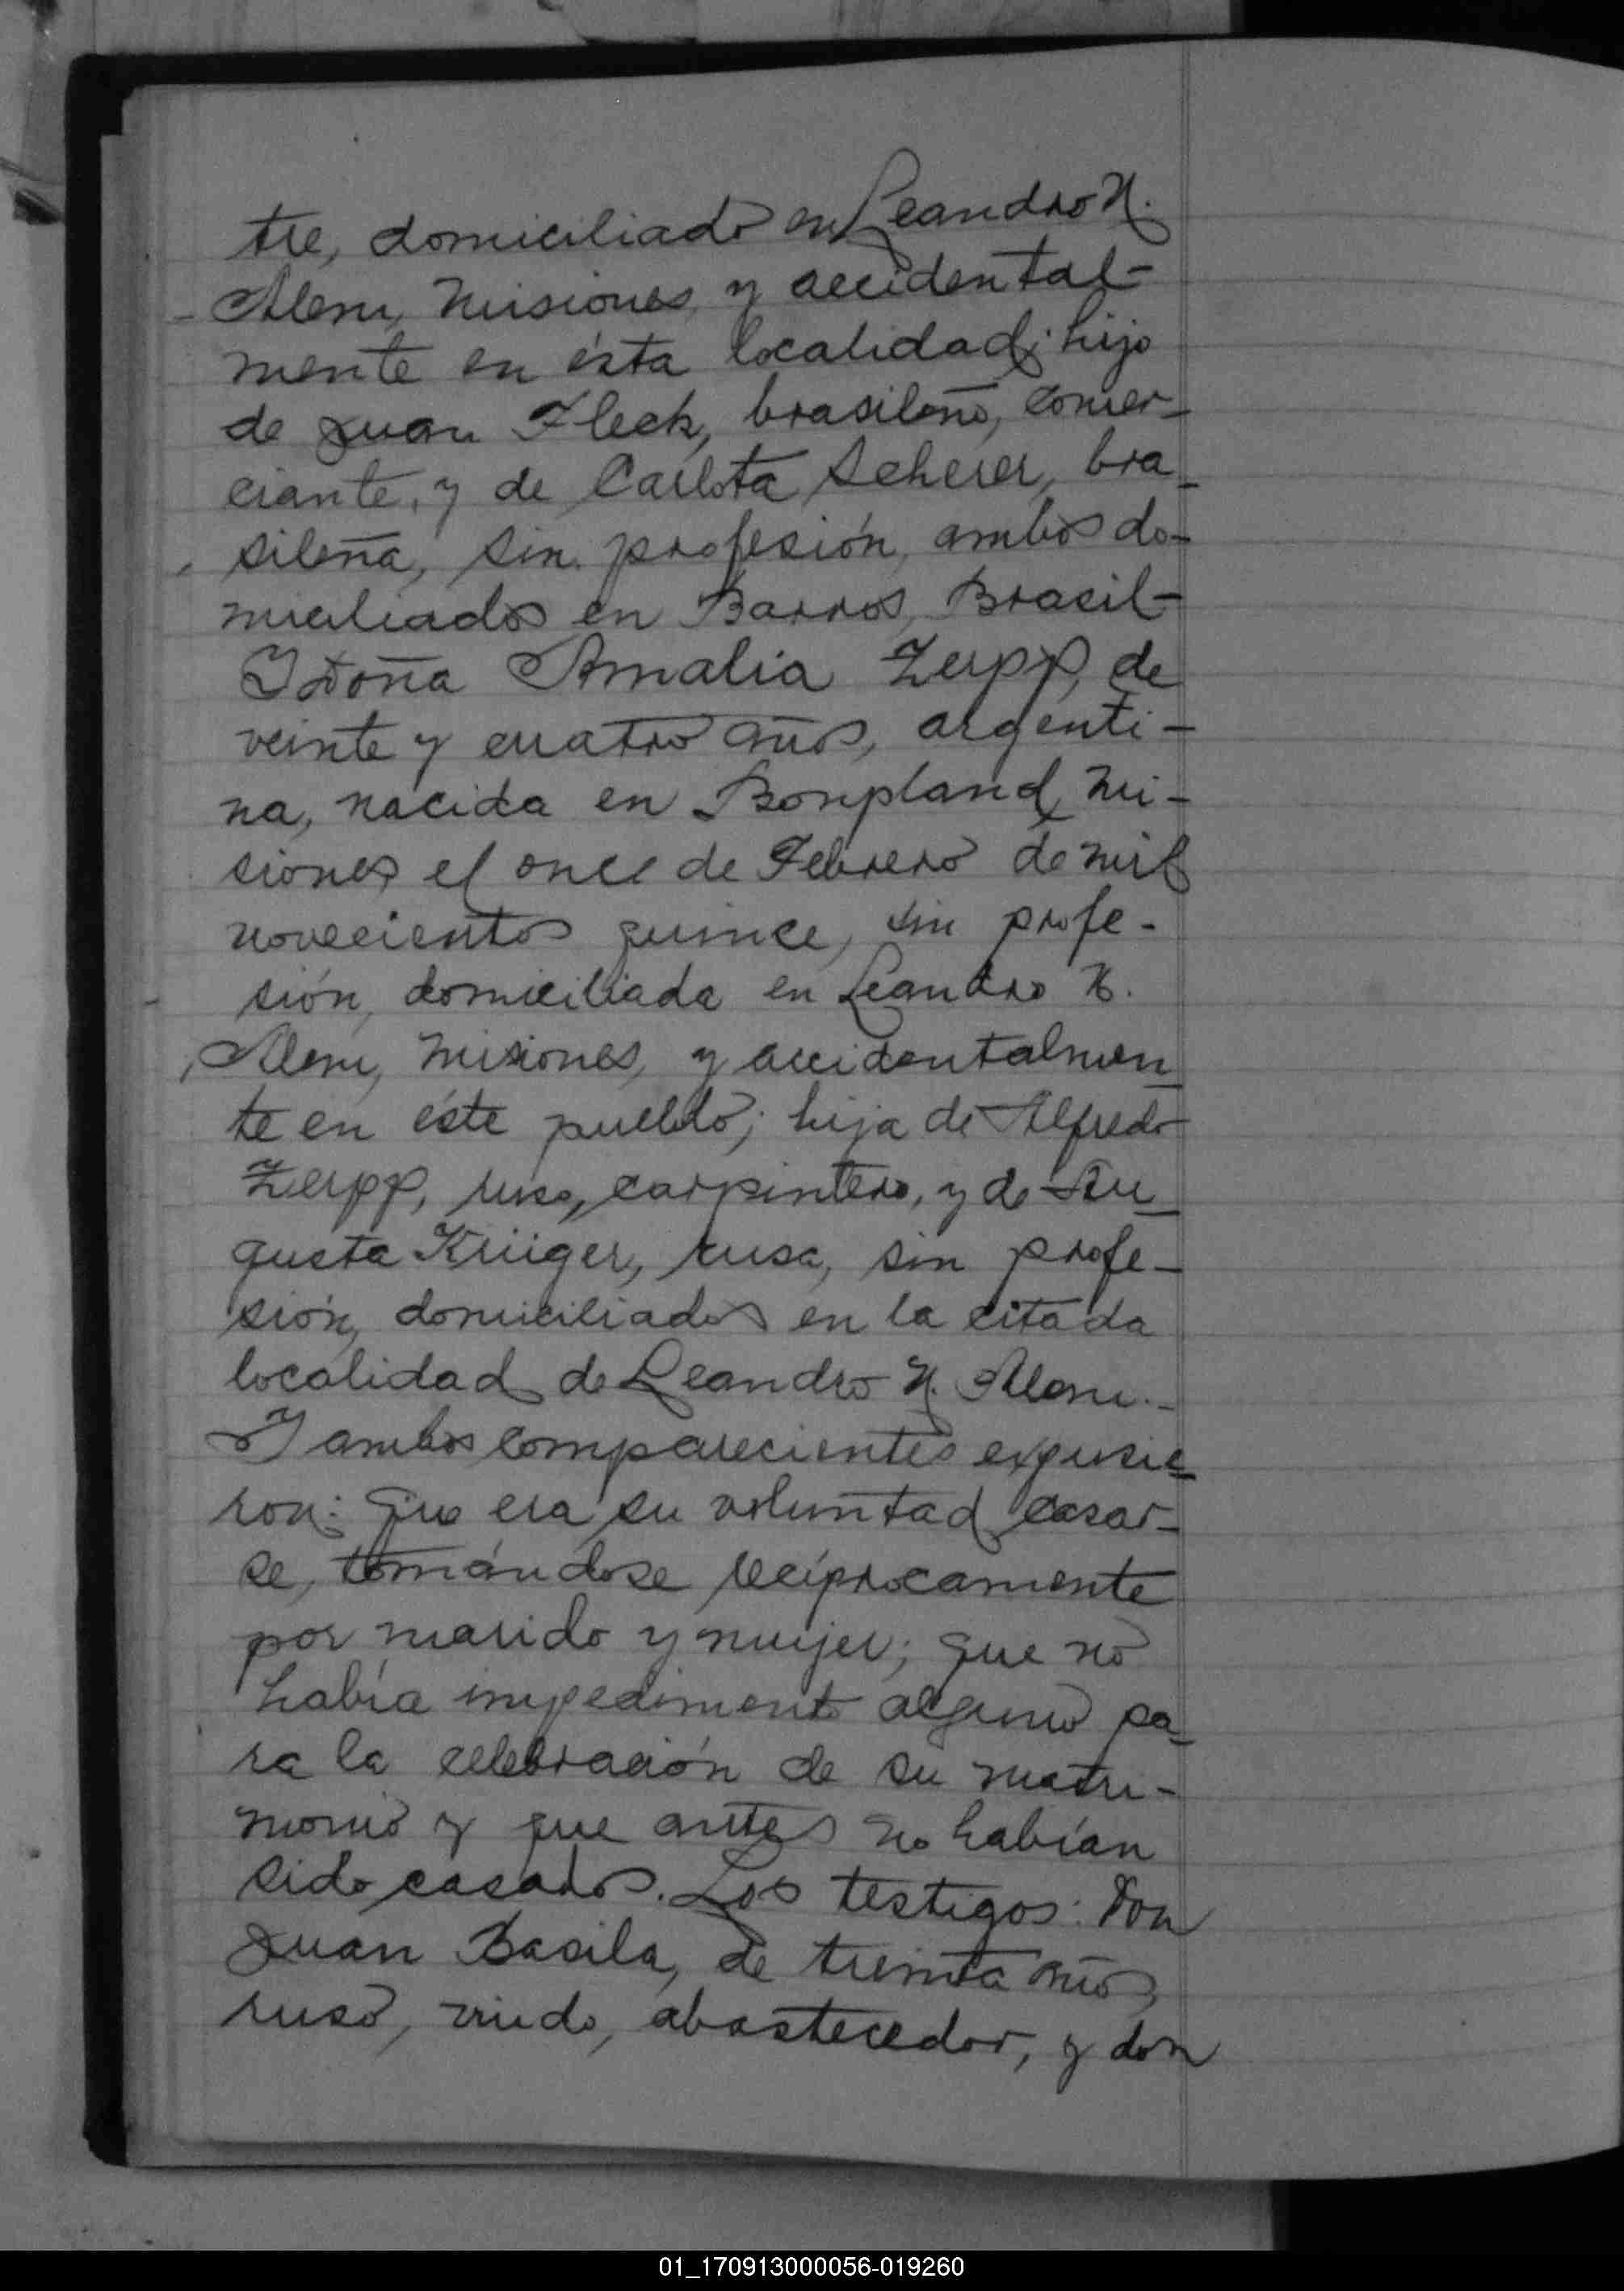 tre, domiciliado en Leandro N.
Alem, Misiones, y accidental-
mente en ésta localidad; hijo
de Juan Fleck, brasileño, comer-
ciante, y de Carlota Scherer, bra-
sileña, sin profesión, ambos do-
miciliados en Barros, Brasil-
Y Doña Amalia Zerpp, de
veinte y cuatro años, argenti-
na, nacida en Bonpland, Mi-
siones, el once de Febrero de mil
novecientos quince, sin profe-
sión, domiciliada en Leandro N.
Alem, Misiones, y accidentalmen-
te en éste pueblo; hija de Alfredo
Zerpp, ruso, carpintero, y de Au-
gusta Krüger, rusa, sin profe-
sión, domiciliados en la citada
localidad de Leandro N. Alem.-
Y ambos comparecientes expusie-
ron: Que era su voluntad casar-
se, tomándose recíprocamente
por marido y mujer; que no
había impedimento alguno pa-
ra la celebración de su matri-
monio y que antes no habían
sido casados. Los testigos: Don
Juan Basila, de treinta años,
ruso, viudo, abastecedor, y don
01_170913000056-019260